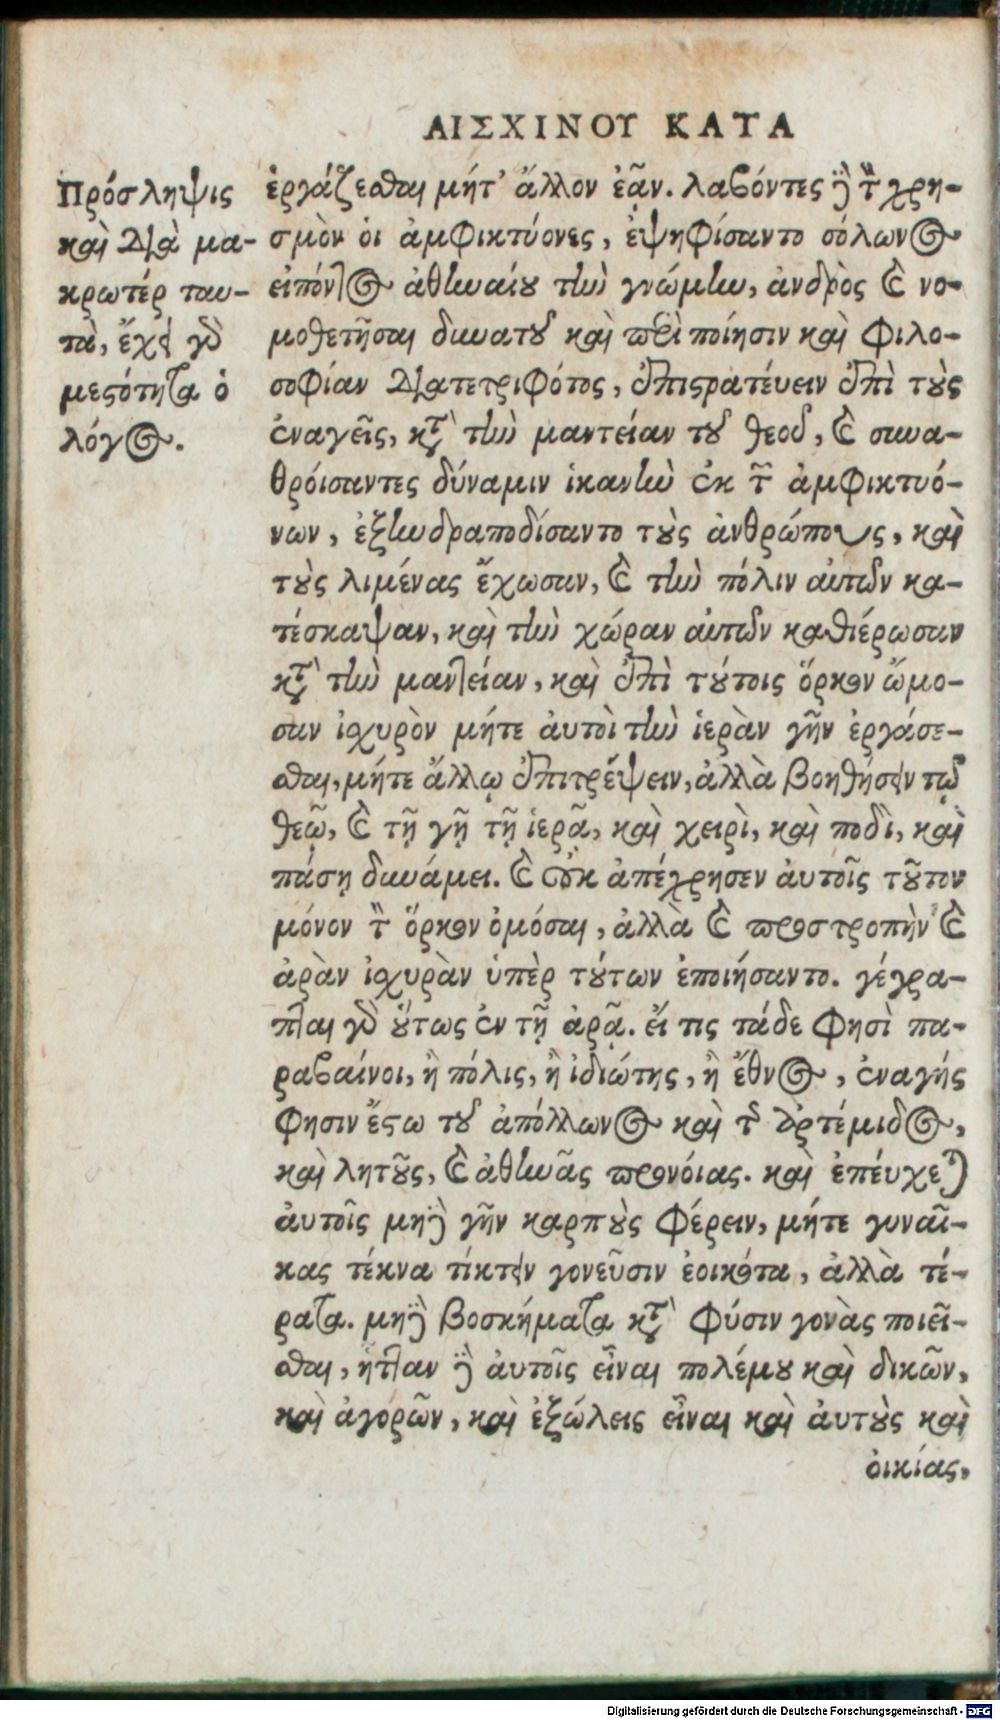 ΑΙΣΧΙΝΟΥ ΚΑΤΑ
Πρόσληψις
καὶ διὰ μα-
κρωτέρ ταυ-
τὰ, ἔχει γὰρ
μεσότητα ὁ
λόγος.
ἐργάζεσθαι μήτ' ἄλλον ἐᾷν. λαβόντες δὲ τὸν χρη-
σμὸν ὁι ἀμφικτύονες, ἐψηφίσαντο σόλωνος
εἰπόντος ἀθηναίου τὴν γνώμην, ἀνδρὸς καὶ νο-
μοθετῆσαι δυνατοῦ καὶ περὶ ποίησιν καὶ φιλο-
σοφίαν διατετριφότος, ἐπιστρατέυειν ἐπὶ τοὺς
ἐναγεῖς, κατὰ τὴν μαντείαν τοῦ θεοῦ, καὶ συνα-
θρόισαντες δύναμιν ἱκανὴν ἐκ τῶν ἀμφικτυό-
νων, ἐξηνδραποδίσαντο τοὺς ἀνθρώπους, καὶ
τοὺς λιμένας ἔχωσαν, καὶ τὴν πόλιν αὐτῶν κα-
τέσκαψαν, καὶ τὴν χώραν αὐτῶν καθιέρωσαν
κατὰ τὴν μαντείαν, καὶ ἐπὶ τούτοις ὅρκον ὤμο-
σαν ἰσχυρὸν μήτε ἀυτοὶ τὴν ἱερὰν γῆν ἐργάσε-
σθαι, μήτε ἄλλῳ ἐπιτρέψειν, ἀλλὰ βοηθήσειν τῷ
θεῷ, καὶ τῇ γῇ τῇ ἱερᾷ, καὶ χειρὶ, καὶ ποδὶ, καὶ
πάσῃ δυνάμει. καὶ οὐκ ἀπέχρησεν ἀυτοῖς τοῦτον
μόνον τὸν ὅρκον ὀμόσαι, ἀλλὰ καὶ προστροπὴν καὶ
ἀρὰν ἰσχυρὰν ὑπὲρ τούτων ἐποιήσαντο. γέγρα-
πται γὰρ οὕτως ἐν τῇ ἀρᾷ. ἔι τις τάδε φησὶ πα-
ραβαίνοι, ἢ πόλις, ἢ ἰδιώτης, ἢ ἔθνος, ἐναγής
φησιν ἔστω τοῦ ἀπόλλωνος καὶ τῆς ἀρτέμιδος,
καὶ λητοῦς, καὶ ἀθηνᾶς προνόιας. καὶ ἐπέυχεται
ἀυτοῖς μηδὲ γῆν καρποὺς φέρειν, μήτε γυναῖ-
κας τέκνα τίκτειν γονεῦσιν ἐοικότα, ἀλλὰ τέ-
ρατα. μηδὲ βοσκήματα κατὰ φύσιν γονὰς ποιεῖ-
σθαι, ἧτταν δὲ ἀυτοῖς εἶναι πολέμου καὶ δικῶν,
καὶ ἀγορῶν, καὶ ἐξώλεις εἶναι καὶ ἀυτοὺς καὶ
ὀικίας,
Digitalisierung gefördert durch die Deutsche Forschungsgemeinschaft - DFG